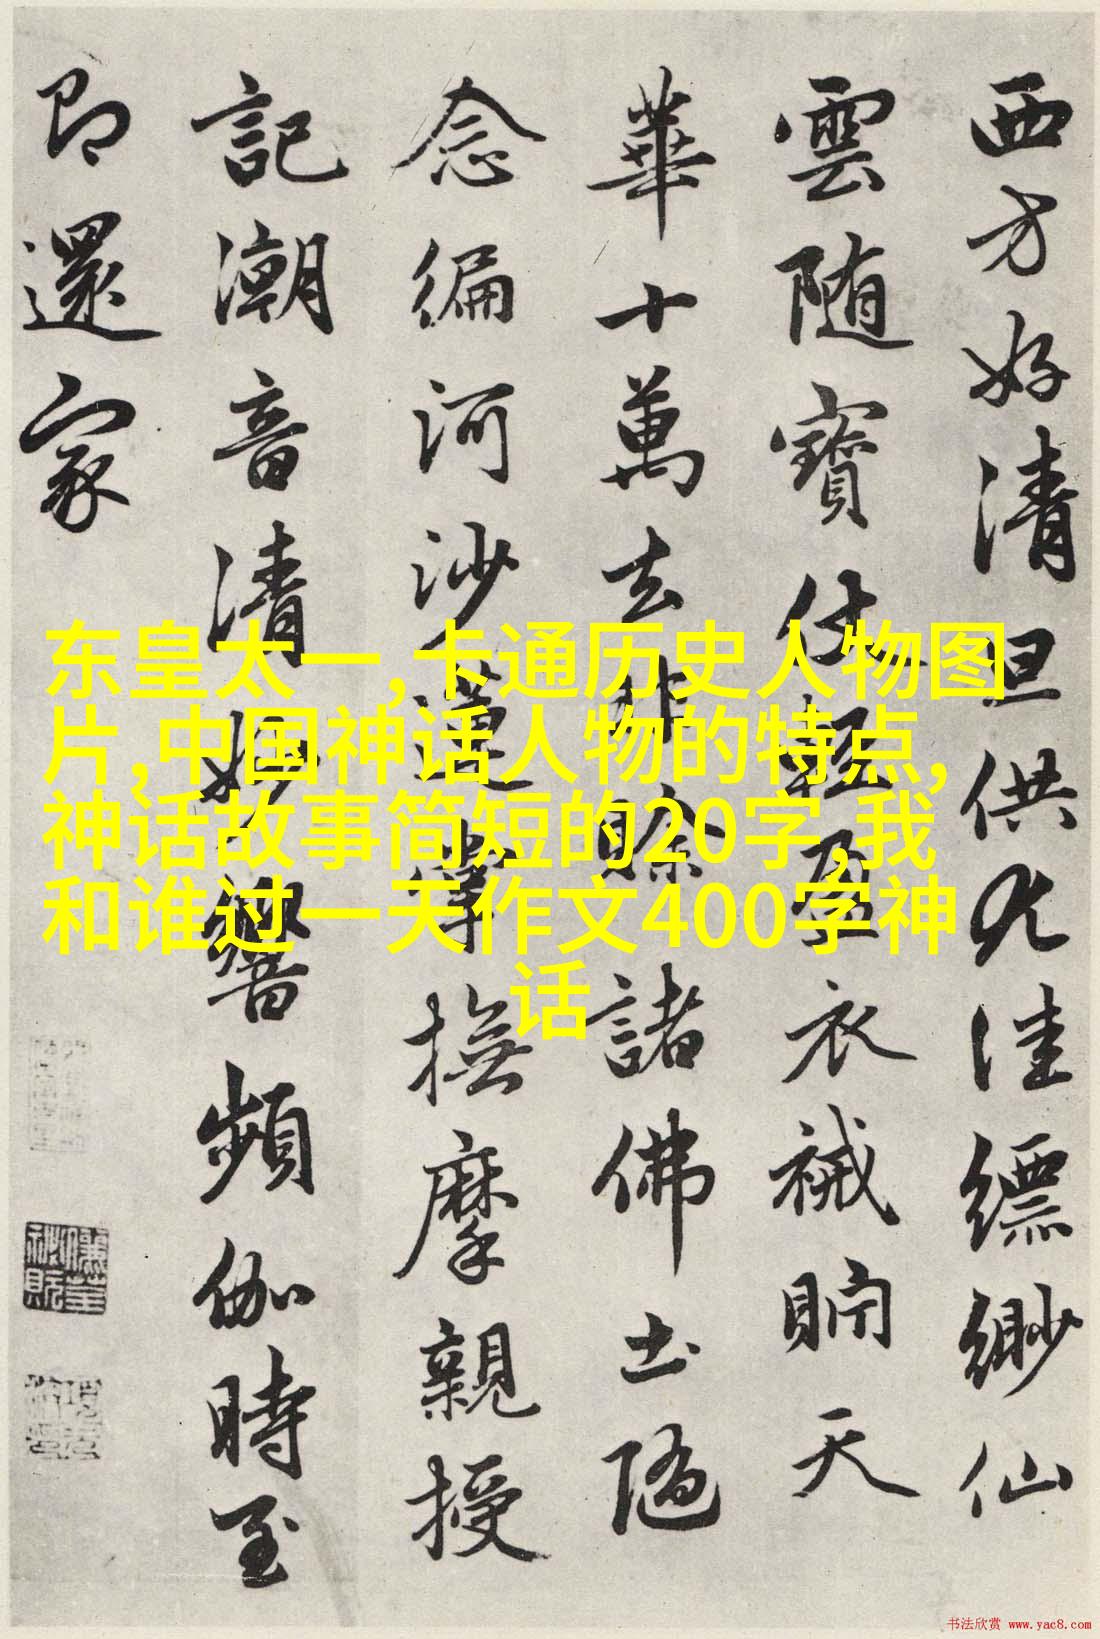 西方好清旦供尤佳縹緲仙
雲随寶仗輕盈衣裓貯天
華十萬去非賒諸佛土隨
念徧河沙蓮掌撫摩親授
記潮音清妙響頻伽時至
即還家
东皇太一,卡通历史人物图
片,中国神话人物的特点,
神话故事简短的20字,我
和谁过一天作文400字神
话
书法欣赏 www.yac8.com